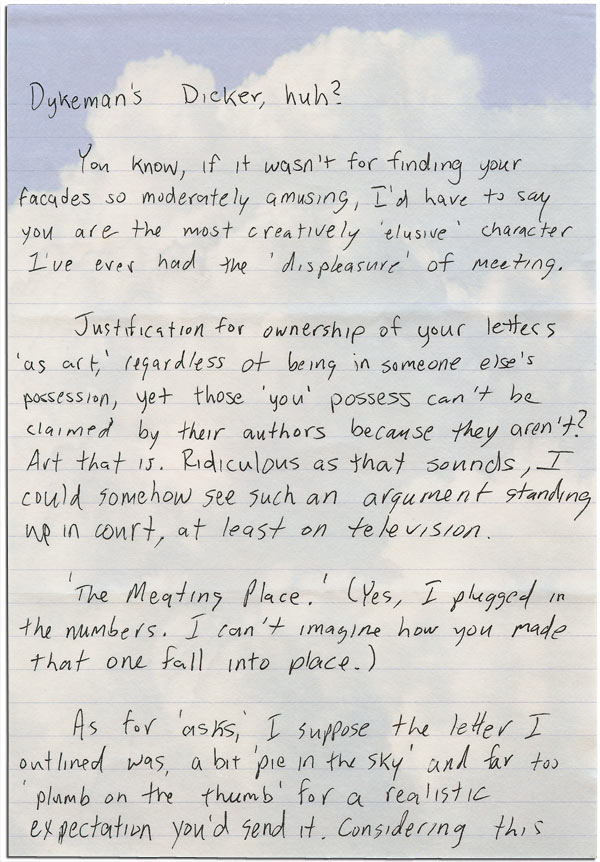 Dykeman's Dicker, huh?
You know, if it wasn't for finding your
facades so moderately amusing, I'd have to say
you are the most creatively 'elusive' character
I've ever had the 'displeasure' of meeting.
Justification for ownership of your letters
'as art,' regardless of being in someone else's
possession, yet those 'you' possess can't be
claimed by their authors because they aren't?
Art that is. Ridiculous as that sounds, I
could somehow see such an argument standing
up in court, at least on television.
'The Meating Place.' (Yes, I plugged in
the numbers. I can't imagine how you made
that one fall into place.)
As for 'asks,' I suppose the letter I
outlined was, a bit 'pie in the sky' and far too
'plumb on the thumb' for a realistic
expectation you'd send it. Considering this